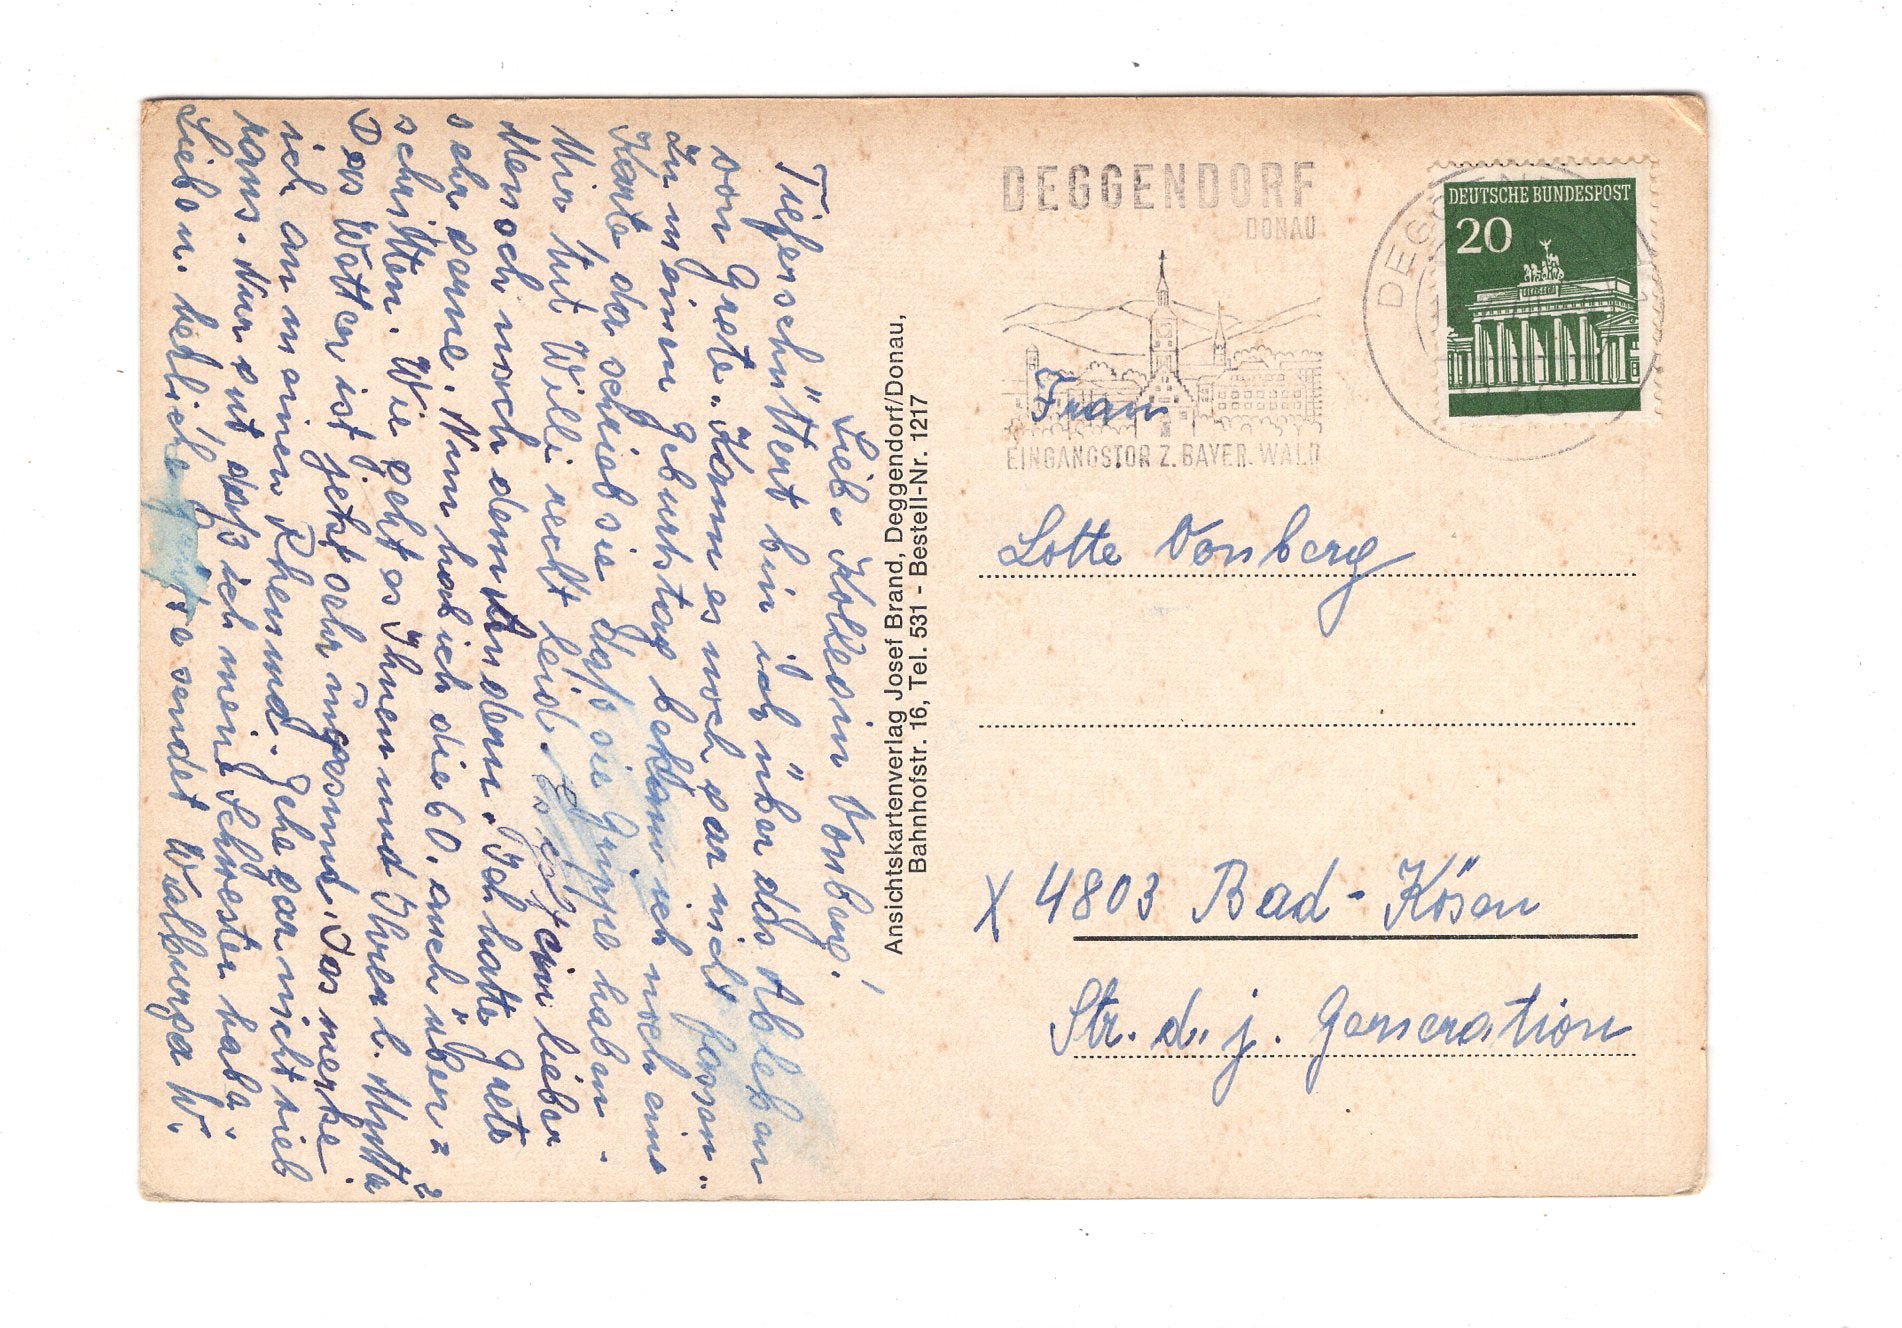 Lieb. Kollegin Vonberg!
Tieferschüttert bin ich über das Ableben
von Grete. Kann es noch gar nicht fassen.
Zu meinem Geburtstag bekam ich noch eine
Karte da schrieb sie daß sie Grippe haben.
Mir tut Willi recht leid. Es ist ein lieber
Mensch noch dem Andern. Ich hatte Grete
sehr gerne. Nun hab ich die 60. auch über=
schritten. Wie geht es Ihnen und Ihrer l. Mutta
Das Wetter ist jetzt sehr ungesund, das merke
ich an meinen Rheuma. Gehe gar nicht viel
raus. Nur gut daß ich mein Schwester habe.
Lieben herzliche Grüße sendet Walburga W.
Ansichtskartenverlag Josef Brand, Deggendorf/Donau,
Bahnhofstr. 16, Tel. 531 - Bestell-Nr. 1217
DEGGENDORF
DONAU
EINGANGSTOR Z. BAYER. WALD
DEUTSCHE BUNDESPOST
20
Frau
Lotte Vonberg
X 4803 Bad-Kösen
Str. d. j. Generation